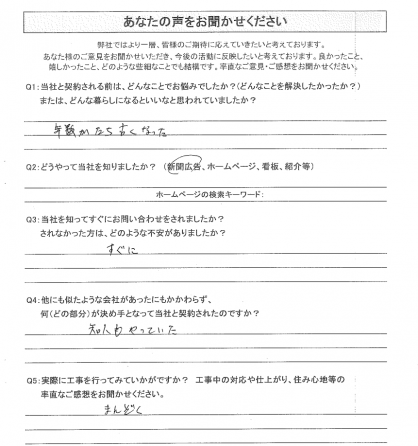 あなたの声をお聞かせください
弊社ではより一層、皆様のご期待に応えていきたいと考えております。
あなた様のご意見をお聞かせいただき、今後の活動に反映したいと考えております。良かったこと、
嬉しかったこと、どのような些細なことでも結構です。率直なご意見・ご感想をお聞かせください。
Q1:当社と契約される前は、どんなことでお悩みでしたか?(どんなことを解決したかったか?)
または、どんな暮らしになるといいなと思われていましたか?
年数がたち古くなった
Q2:どうやって当社を知りましたか? (新聞広告、ホームページ、看板、紹介等)
ホームページの検索キーワード:
Q3:当社を知ってすぐにお問い合わせをされましたか?
されなかった方は、どのような不安がありましたか?
すぐに
Q4:他にも似たような会社があったにもかかわらず、
何(どの部分)が決め手となって当社と契約されたのですか?
知人もやっていた
Q5:実際に工事を行ってみていかがですか? 工事中の対応や仕上がり、住み心地等の
率直なご感想をお聞かせください。
まんぞく